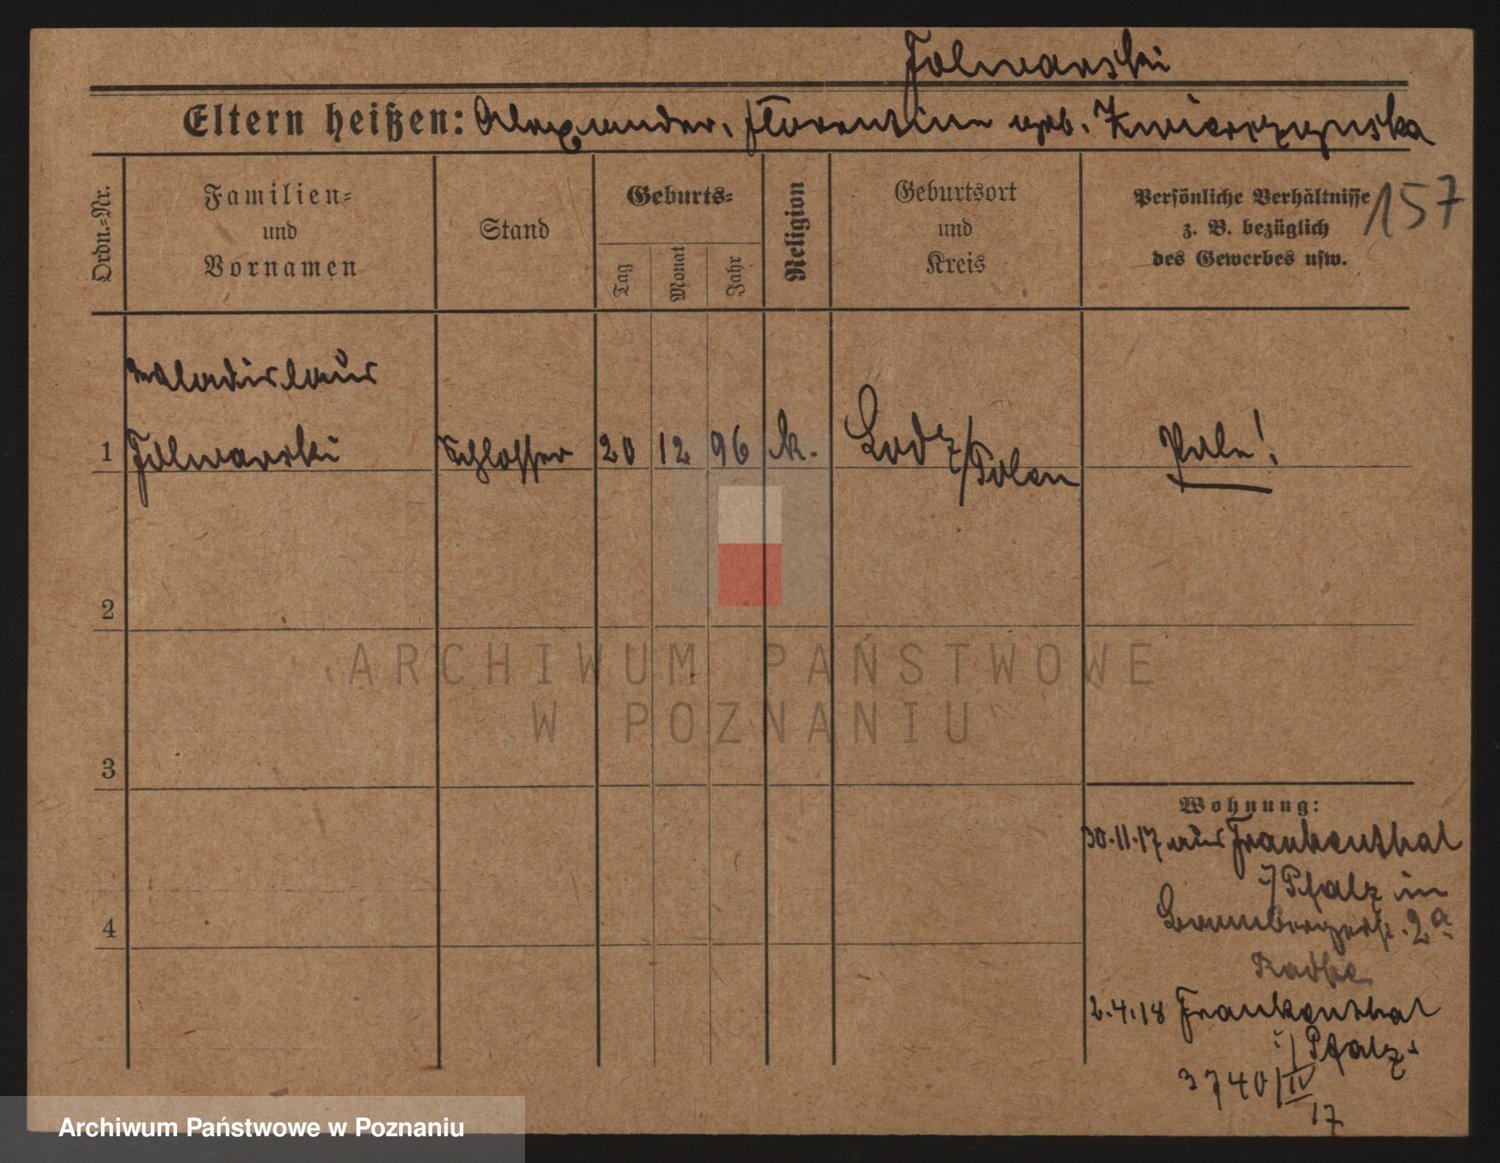 Folwarski
Eltern heißen: Alexander, Florentine geb. Kwierczynska
157
Ordn.-Nr.
Familien-
und
Vornamen
Stand
Geburts-
Tag
Monat
Jahr
Religion
Geburtsort
und
Kreis
Persönliche Verhältnisse
z. B. bezüglich
des Gewerbes usw.
Wladislaus
1 Folwarski Schlosser 20 12 96 k. Lodz/Polen Pole!
2
ARCHIWUM PAŃSTWOWE
W POZNANIU
3
Wohnung:
30.11.17 aus Frankenthal
i/Pfalz in
2a
4
2.4.18 Frankenthal
i/Pfalz.
3740/IV
17
Archiwum Państwowe w Poznaniu